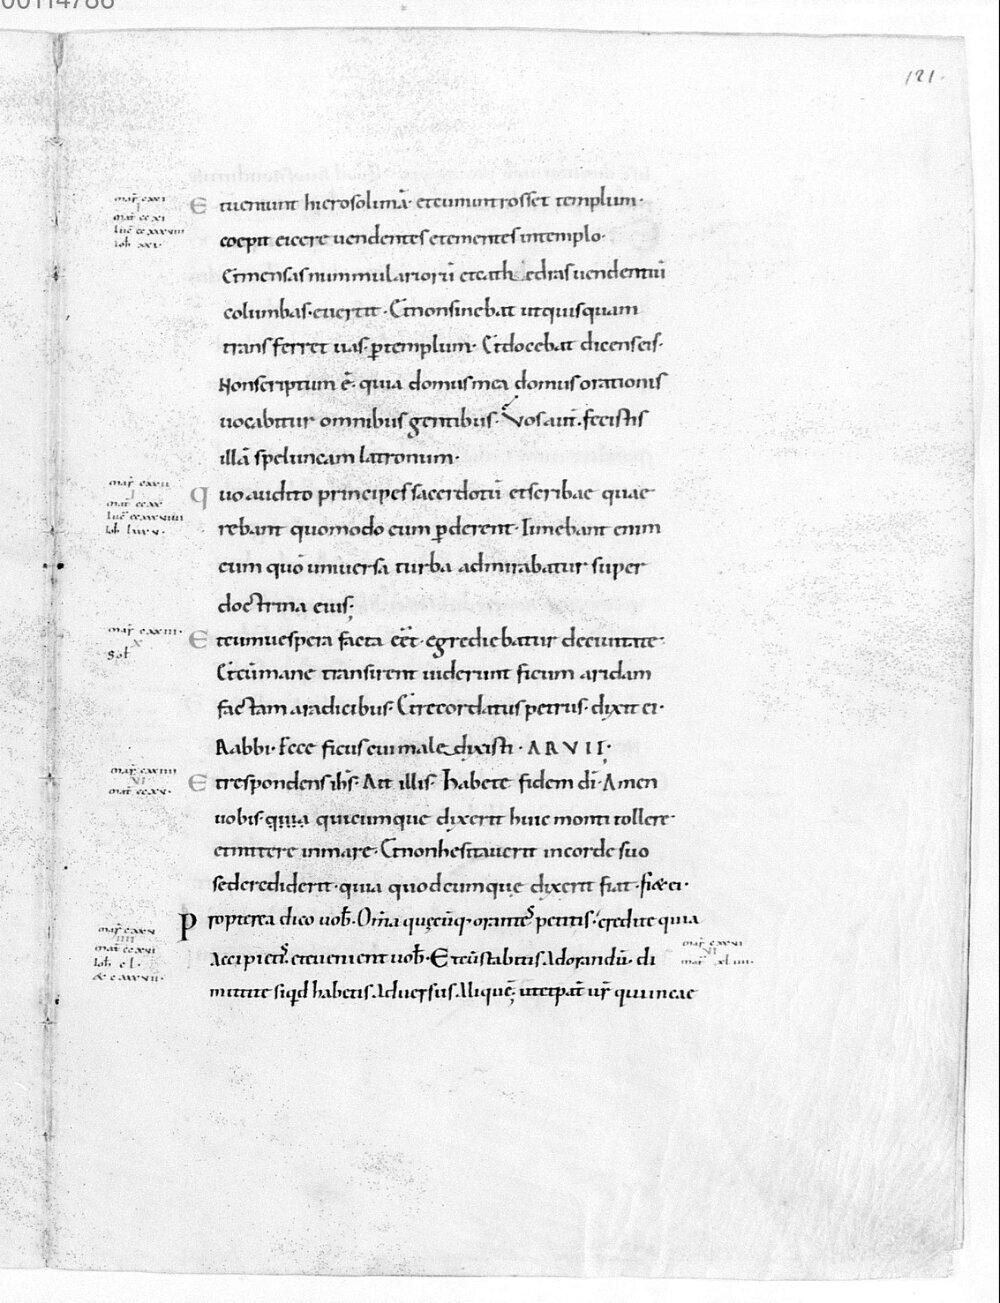 00114786
121.
Et ueniunt hierosolimā· et cum introisset templum·
coepit eicere uendentes et ementes in templo·
Et mensas nummulariorū et cathedras uendentiū
columbas· euertit· Et non sinebat ut quisquam
transferret uas ꝑ templum· Et docebat dicens eis·
Non scriptum ē· quia domus mea domus orationis
uocabitur omnibus gentibus· Vos aut̄ fecistis
illā speluncam latronum·
quo audito principes sacerdotū et scribae quae
rebant quomodo eum ꝑderent· Timebant enim
eum quō uniuersa turba admirabatur super
doctrina eius;
Et cum uespera facta eēt· egrediebatur de ciuitate·
Et cū mane transirent uiderunt ficum aridam
factam a radicibus· Et recordatus petrus· dixit ei·
Rabbi· Ecce ficus cui maledixisti· ARVIT·
Et respondens ih̄s· Ait illis· Habete fidem dī· Amen
uobis· quia quicumque dixerit huic monti tollere·
et mittere in mare· Et non hesitauerit in corde suo
sed crediderit· quia quodcumque dixerit fiat· fiet ei·
Propterea dico uob̄· Om̄a quęcūq· orantes petitis· credite quia
Accipietis· et euenient uob̄· Et cū stabitis Adorandū· di
mittite siqd habetis Aduersus Aliquē; ut et pat̄ ur̄ qui in cae